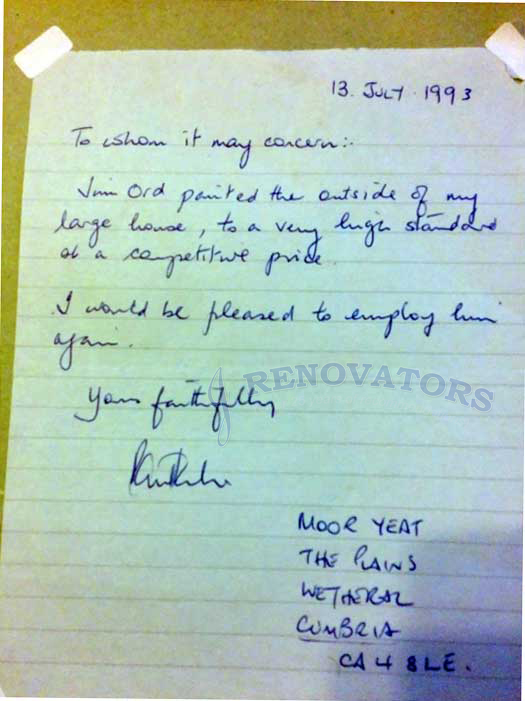 13. JULY. 1993
To whom it may concern:-
Jim Ord painted the outside of my
large house, to a very high standard
at a competitive price.
I would be pleased to employ him
again.
Yours faithfully
RENOVATORS
MOOR YEAT
THE PLAINS
WETHERAL
CUMBRIA
CA4 8LE.